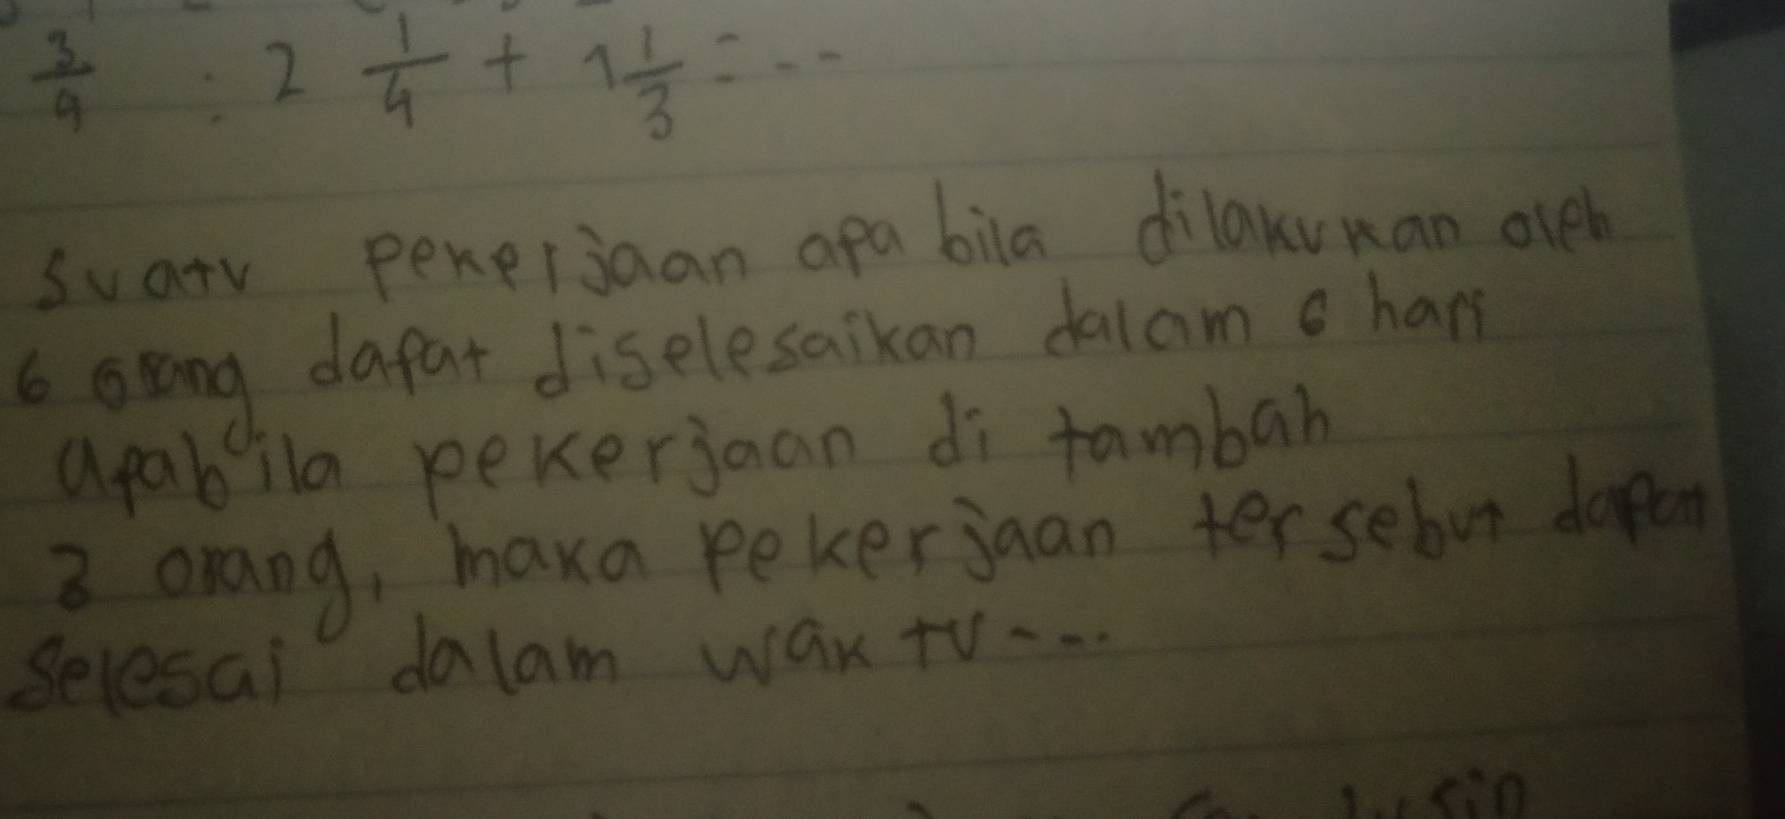 3/4 : 2 1/4 + 1 1/3 = ...
Suatu pekerjaan apa bila dilakukan oleh
6 orang dapat diselesaikan dalam 6 hari
apabila pekerjaan di tambah
3 orang, maka pekerjaan tersebut dapat
selesai dalam waktu ....